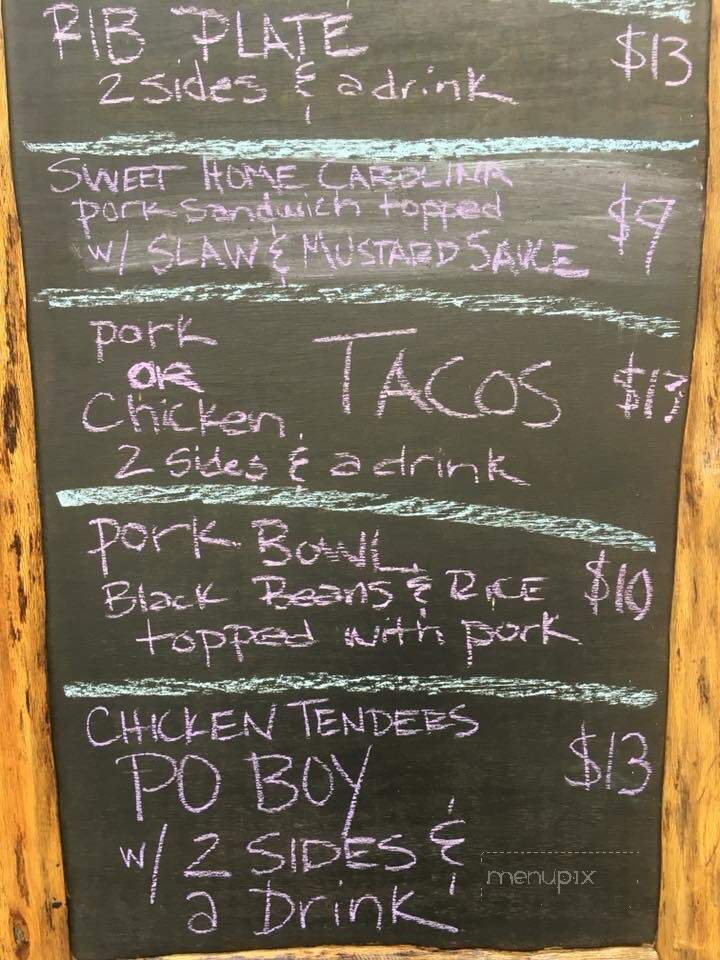 RIB PLATE $13
2 sides & a drink
SWEET HOME CAROLINA
pork sandwich topped $9
w/ SLAW & MUSTARD SAUCE
pork
OR
Chicken TACOS $13
2 Sides & a drink
pork BOWL
Black Beans & RICE $10
topped with pork
CHICKEN TENDERS
PO BOY $13
w/ 2 SIDES &
a Drink
menupix